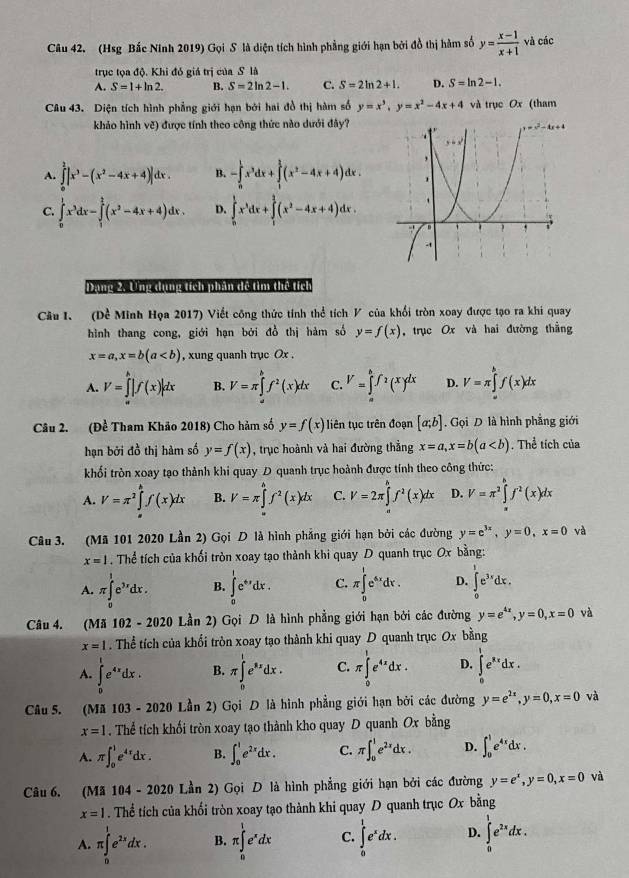 Câu 42. (Hsg Bắc Ninh 2019) Gọi S là diện tích hình phẳng giới hạn bởi đồ thị hàm số y = \frac{x-1}{x+1} và các
trục tọa độ. Khi đó giá trị của S là
A. S = 1 + ln 2. B. S = 2 ln 2 − 1. C. S = 2 ln 2 + 1. D. S = ln 2 − 1.
Câu 43. Diện tích hình phẳng giới hạn bởi hai đồ thị hàm số y = x³, y = x² − 4x + 4 và trục Ox (tham
khảo hình vẽ) được tính theo công thức nào dưới đây?
y = x³ y = x² − 4x + 4
A. \int_0^2 |x³ − (x² − 4x + 4)| dx. B. −\int_0^1 x³dx + \int_1^2 (x² − 4x + 4) dx.
C. \int_0^1 x³dx − \int_1^2 (x² − 4x + 4) dx. D. \int_0^1 x³dx + \int_1^2 (x² − 4x + 4) dx.
Dạng 2. Ứng dụng tích phân để tìm thể tích
Câu 1. (Đề Minh Họa 2017) Viết công thức tính thể tích V của khối tròn xoay được tạo ra khi quay
hình thang cong, giới hạn bởi đồ thị hàm số y = f(x), trục Ox và hai đường thẳng
x = a, x = b (a < b), xung quanh trục Ox.
A. V = \int_a^b |f(x)| dx B. V = π\int_a^b f²(x)dx C. V = \int_a^b f²(x)dx D. V = π\int_a^b f(x)dx
Câu 2. (Đề Tham Khảo 2018) Cho hàm số y = f(x) liên tục trên đoạn [a;b]. Gọi D là hình phẳng giới
hạn bởi đồ thị hàm số y = f(x), trục hoành và hai đường thẳng x = a, x = b (a < b). Thể tích của
khối tròn xoay tạo thành khi quay D quanh trục hoành được tính theo công thức:
A. V = π²\int_a^b f(x)dx B. V = π\int_a^b f²(x)dx C. V = 2π\int_a^b f²(x)dx D. V = π²\int_a^b f²(x)dx
Câu 3. (Mã 101 2020 Lần 2) Gọi D là hình phẳng giới hạn bởi các đường y = e^{3x}, y = 0, x = 0 và
x = 1. Thể tích của khối tròn xoay tạo thành khi quay D quanh trục Ox bằng:
A. π\int_0^1 e^{3x}dx. B. \int_0^1 e^{6x}dx. C. π\int_0^1 e^{6x}dx. D. \int_0^1 e^{3x}dx.
Câu 4. (Mã 102 - 2020 Lần 2) Gọi D là hình phẳng giới hạn bởi các đường y = e^{4x}, y = 0, x = 0 và
x = 1. Thể tích của khối tròn xoay tạo thành khi quay D quanh trục Ox bằng
A. \int_0^1 e^{4x}dx. B. π\int_0^1 e^{8x}dx. C. π\int_0^1 e^{4x}dx. D. \int_0^1 e^{8x}dx.
Câu 5. (Mã 103 - 2020 Lần 2) Gọi D là hình phẳng giới hạn bởi các đường y = e^{2x}, y = 0, x = 0 và
x = 1. Thể tích khối tròn xoay tạo thành kho quay D quanh Ox bằng
A. π\int_0^1 e^{4x}dx. B. \int_0^1 e^{2x}dx. C. π\int_0^1 e^{2x}dx. D. \int_0^1 e^{4x}dx.
Câu 6. (Mã 104 - 2020 Lần 2) Gọi D là hình phẳng giới hạn bởi các đường y = e^x, y = 0, x = 0 và
x = 1. Thể tích của khối tròn xoay tạo thành khi quay D quanh trục Ox bằng
A. π\int_0^1 e^{2x}dx. B. π\int_0^1 e^x dx C. \int_0^1 e^x dx. D. \int_0^1 e^{2x}dx.